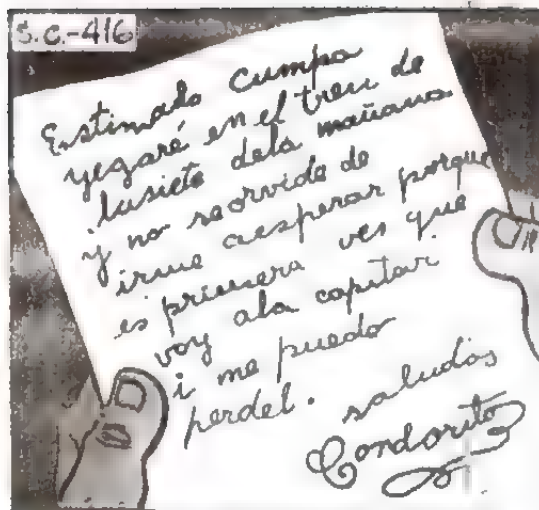 S.C.-416
Estimado cumpa
yegaré en el tren de
lusiete dela mañana
y no seorvide de
irme aesperar porque
es primera ves que
voy ala capitar
i me puedo
perdel. saludos
Condorito